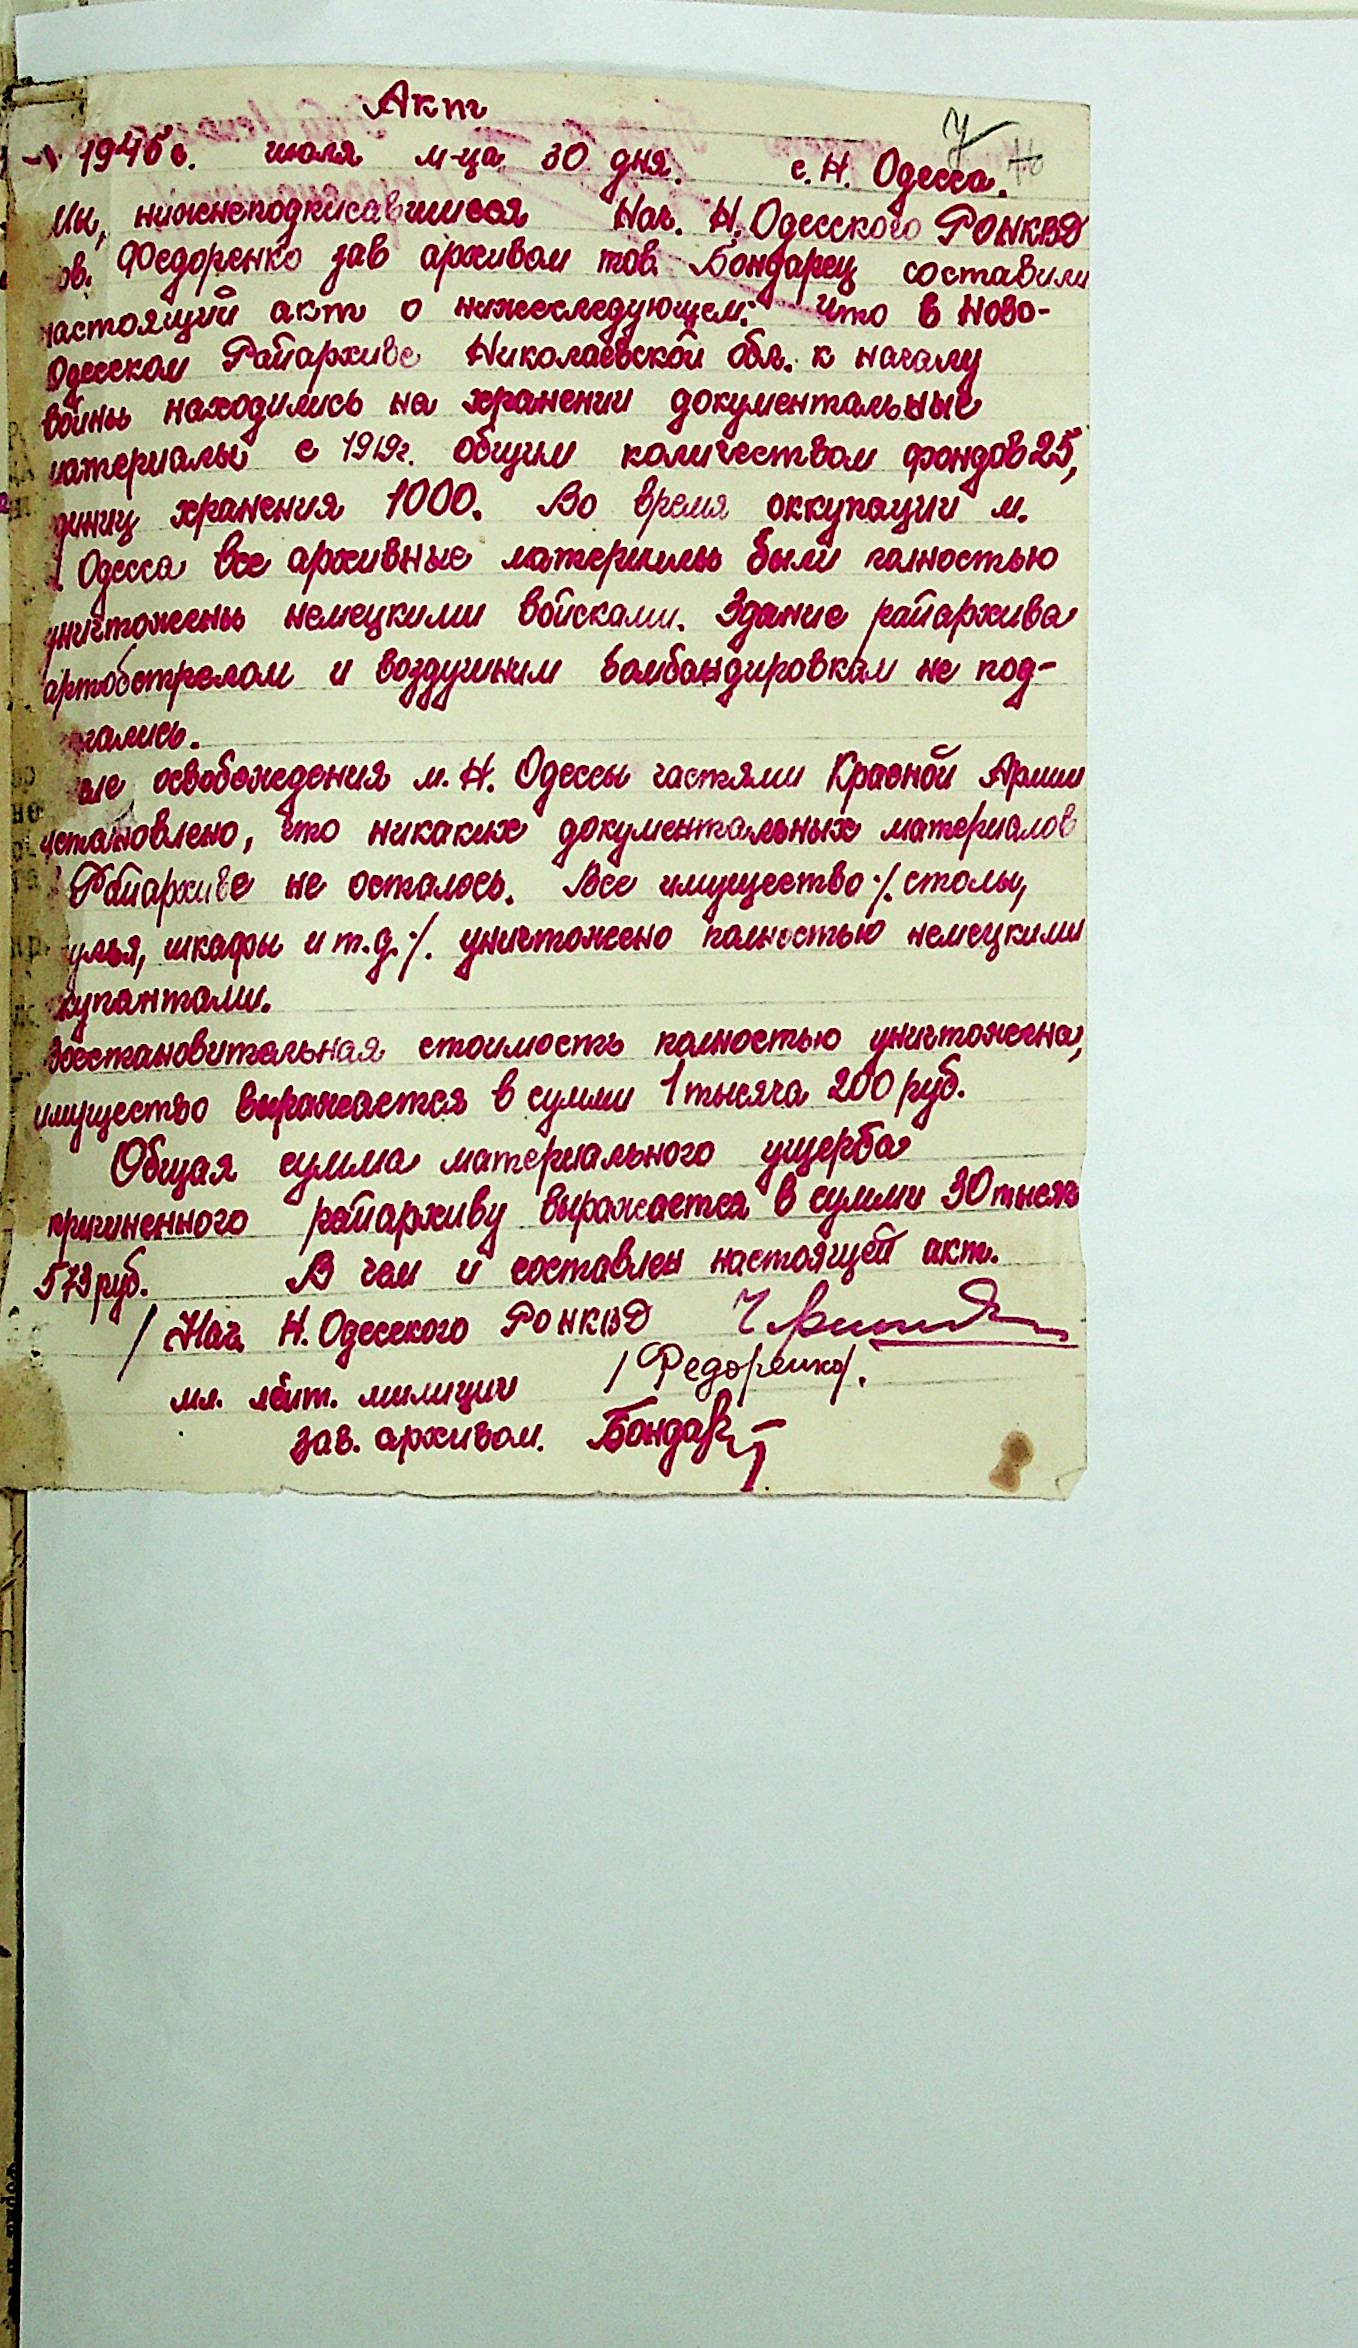 Акт
1945 г. июля м-ца 30 дня. с. Н. Одесса.
Мы, нижнеподписавшиеся Нач. Н. Одесского РОНКВД
ов. Федоренко зав архивом тов. Бондарец составили
настоящий акт о нижеследующем: что в Ново-
Одесском Райархиве Николаевской обл. к началу
войны находились на хранении документальные
материалы с 1919г. общим количеством фондов 25,
диниц хранения 1000. Во время оккупации м.
Одесса все архивные материалы были полностью
уничтожены немецкими войсками. Здание райархива
артобстрелом и воздушним бомбандировкам не под-
гались.
ле освобождения м. Н. Одессы частями Красной Армии
установлено, что никаких документальных материалов
Райархиве не осталось. Все имущество ·/. столы,
улья, шкафы и т.д. ·/. уничтожено полностью немецкими
купантами.
Восстановительная стоимость полностью уничтожена,
имущество выражается в сумми 1 тысяча 200 руб.
Общая сумма материального ущерба
причиненного райархиву выражается в сумми 30 тысяч
573 руб. В чем и составлен настоящей акт.
/ Нач. Н. Одесского РОНКВД
мл. лейт. милиции / Федоренко/.
зав. архивом. Бондарец